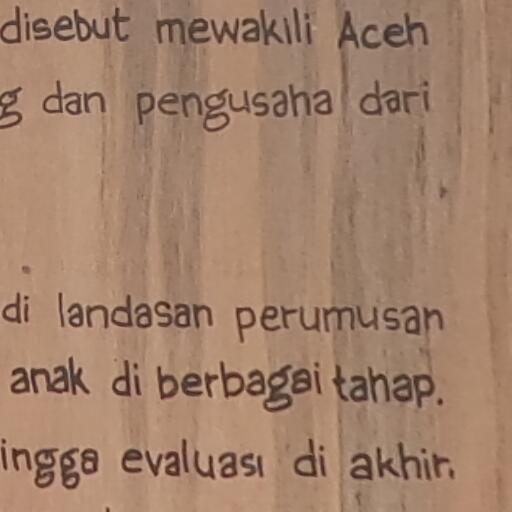 disebut mewakili Aceh
g dan pengusaha dari
di landasan perumusan
anak di berbagai tahap.
ingga evaluasi di akhir.